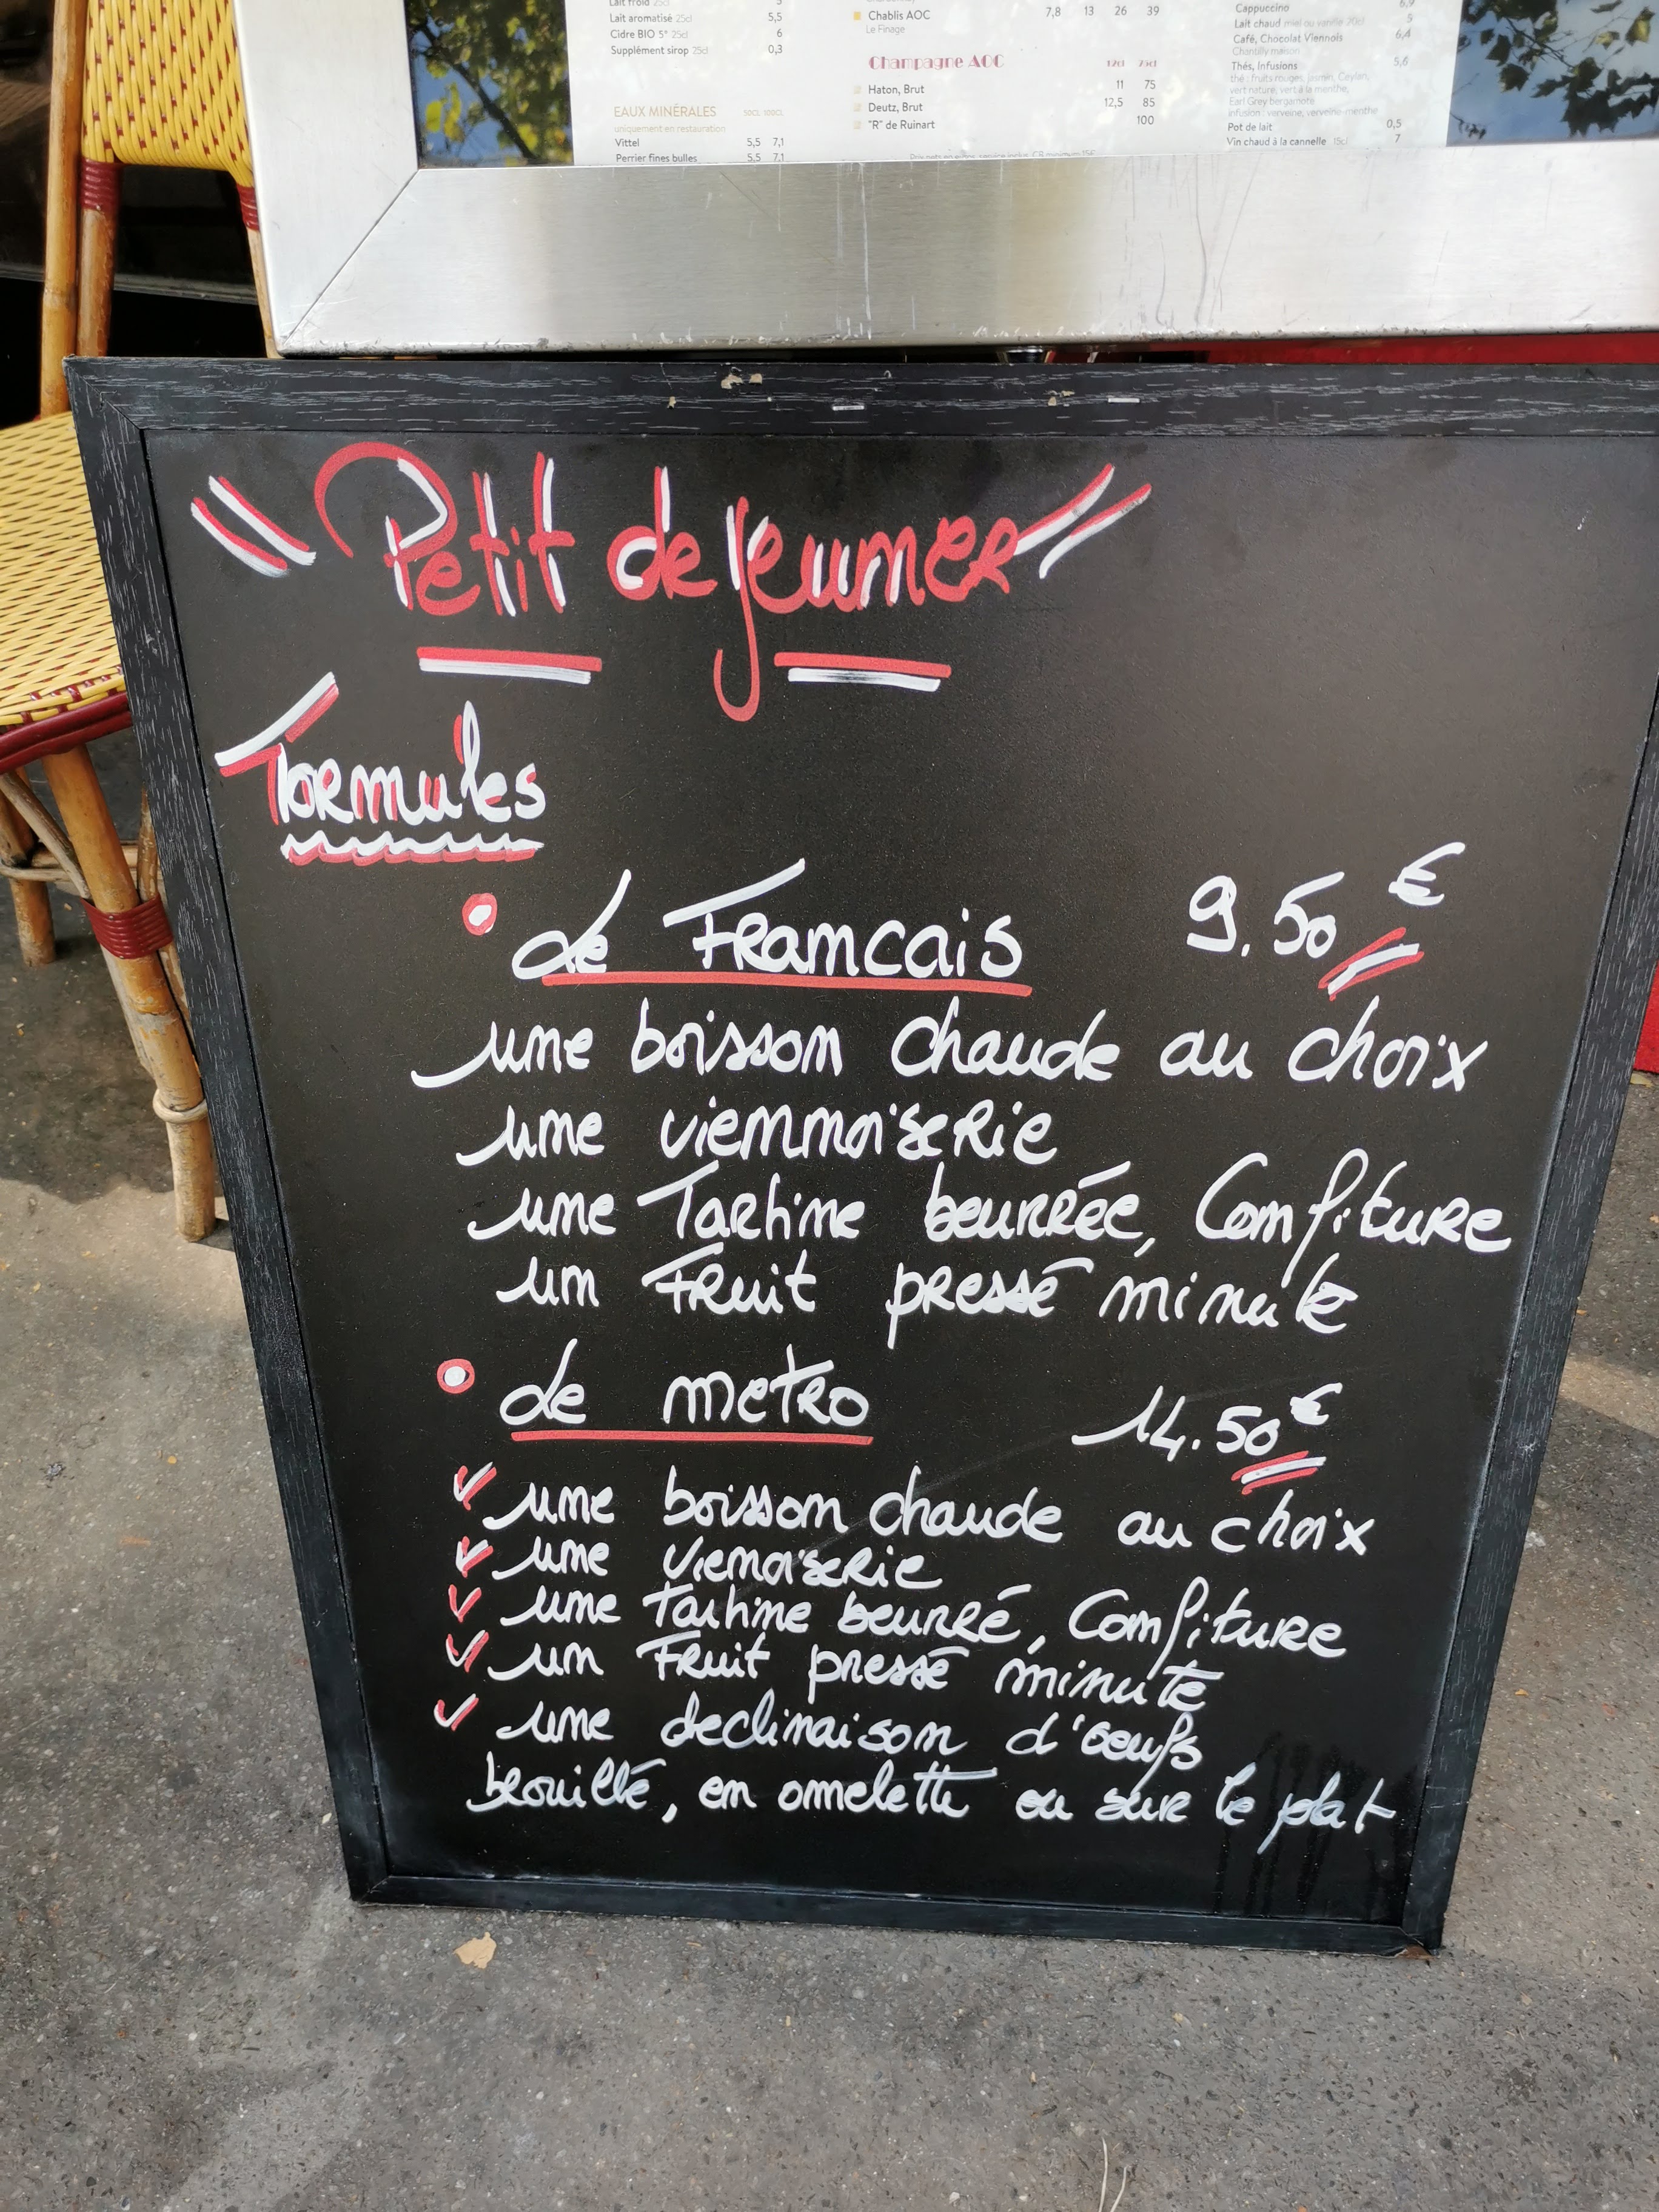 Lait froid 25cl 5
Lait aromatisé 25cl 5,5
Cidre BIO 5° 25cl 6
Supplément sirop 25cl 0,3
EAUX MINÉRALES 50CL 100CL
uniquement en restauration
Vittel 5,5 7,1
Perrier fines bulles 5,5 7,1
Chablis AOC 7,8 13 26 39
Le Finage
Champagne AOC 12cl 75cl
Haton, Brut 11 75
Deutz, Brut 12,5 85
"R" de Ruinart 100
Prix nets en euros, service inclus. CB minimum 15€
Cappuccino 6,9
Lait chaud miel ou vanille 20cl 5
Café, Chocolat Viennois 6,4
Chantilly maison
Thés, Infusions 5,6
thé : fruits rouges, jasmin, Ceylan,
vert nature, vert à la menthe,
Earl Grey bergamote
infusion : verveine, verveine-menthe
Pot de lait 0,5
Vin chaud à la cannelle 15cl 7
" Petit dejeuner "
Formules
• Le Francais 9.50€
une boisson chaude au choix
une viennoiserie
une Tartine beurrée, Confiture
un Fruit pressé minute
• Le metro 14.50€
✓ une boisson chaude au choix
✓ une vienoiserie
✓ une tartine beurré, Confiture
✓ un Fruit pressé minute
✓ une declinaison d'oeufs
brouillé, en omelette ou sur le plat